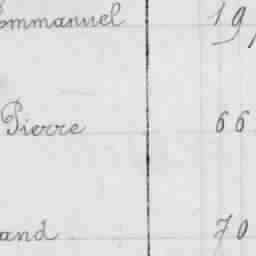 Emmanuel 19
Pierre 66
and 70